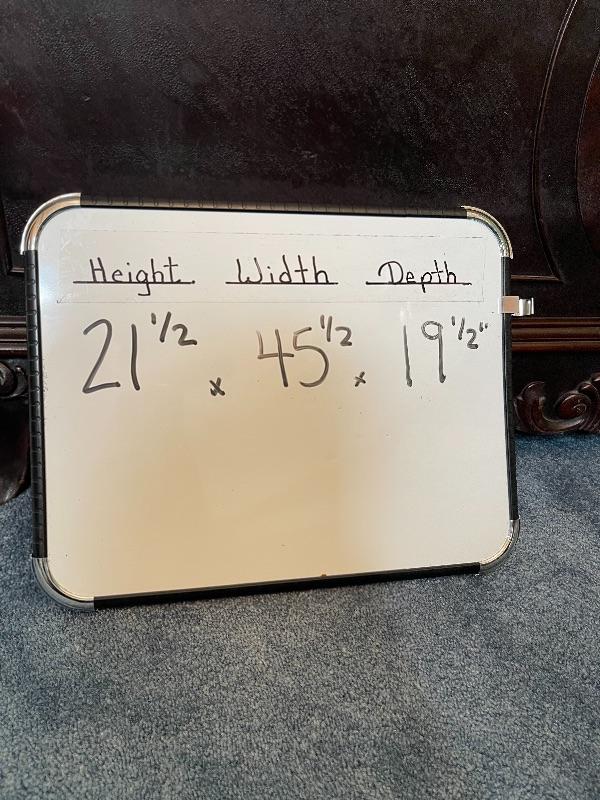 Height Width Depth
21 1/2 x 45 1/2 x 19 1/2"